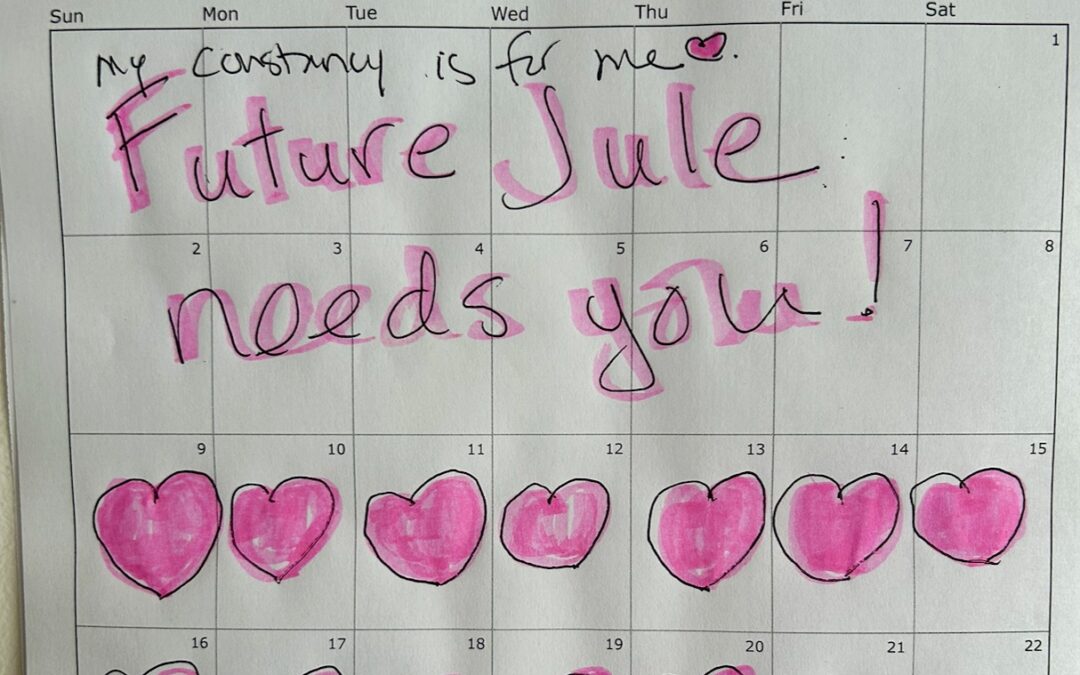 Sun Mon Tue Wed Thu Fri Sat
1
my constancy is for me
Future Jule
2 3 4 5 6 7 8
needs you!
9 10 11 12 13 14 15
16 17 18 19 20 21 22